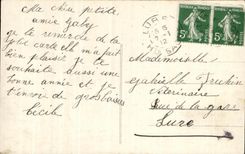 Ma chère petite
amie Gaby
je te remercie de la
jolie carte elle m'a fait
bien plaisir je te
souhaite aussi une
bonne année et je
t'envoie de gros baisers
Cécile
LURE
5c 5c
Mademoiselle
Gabrielle
Vétérinaire
Rue de la gare
Lure